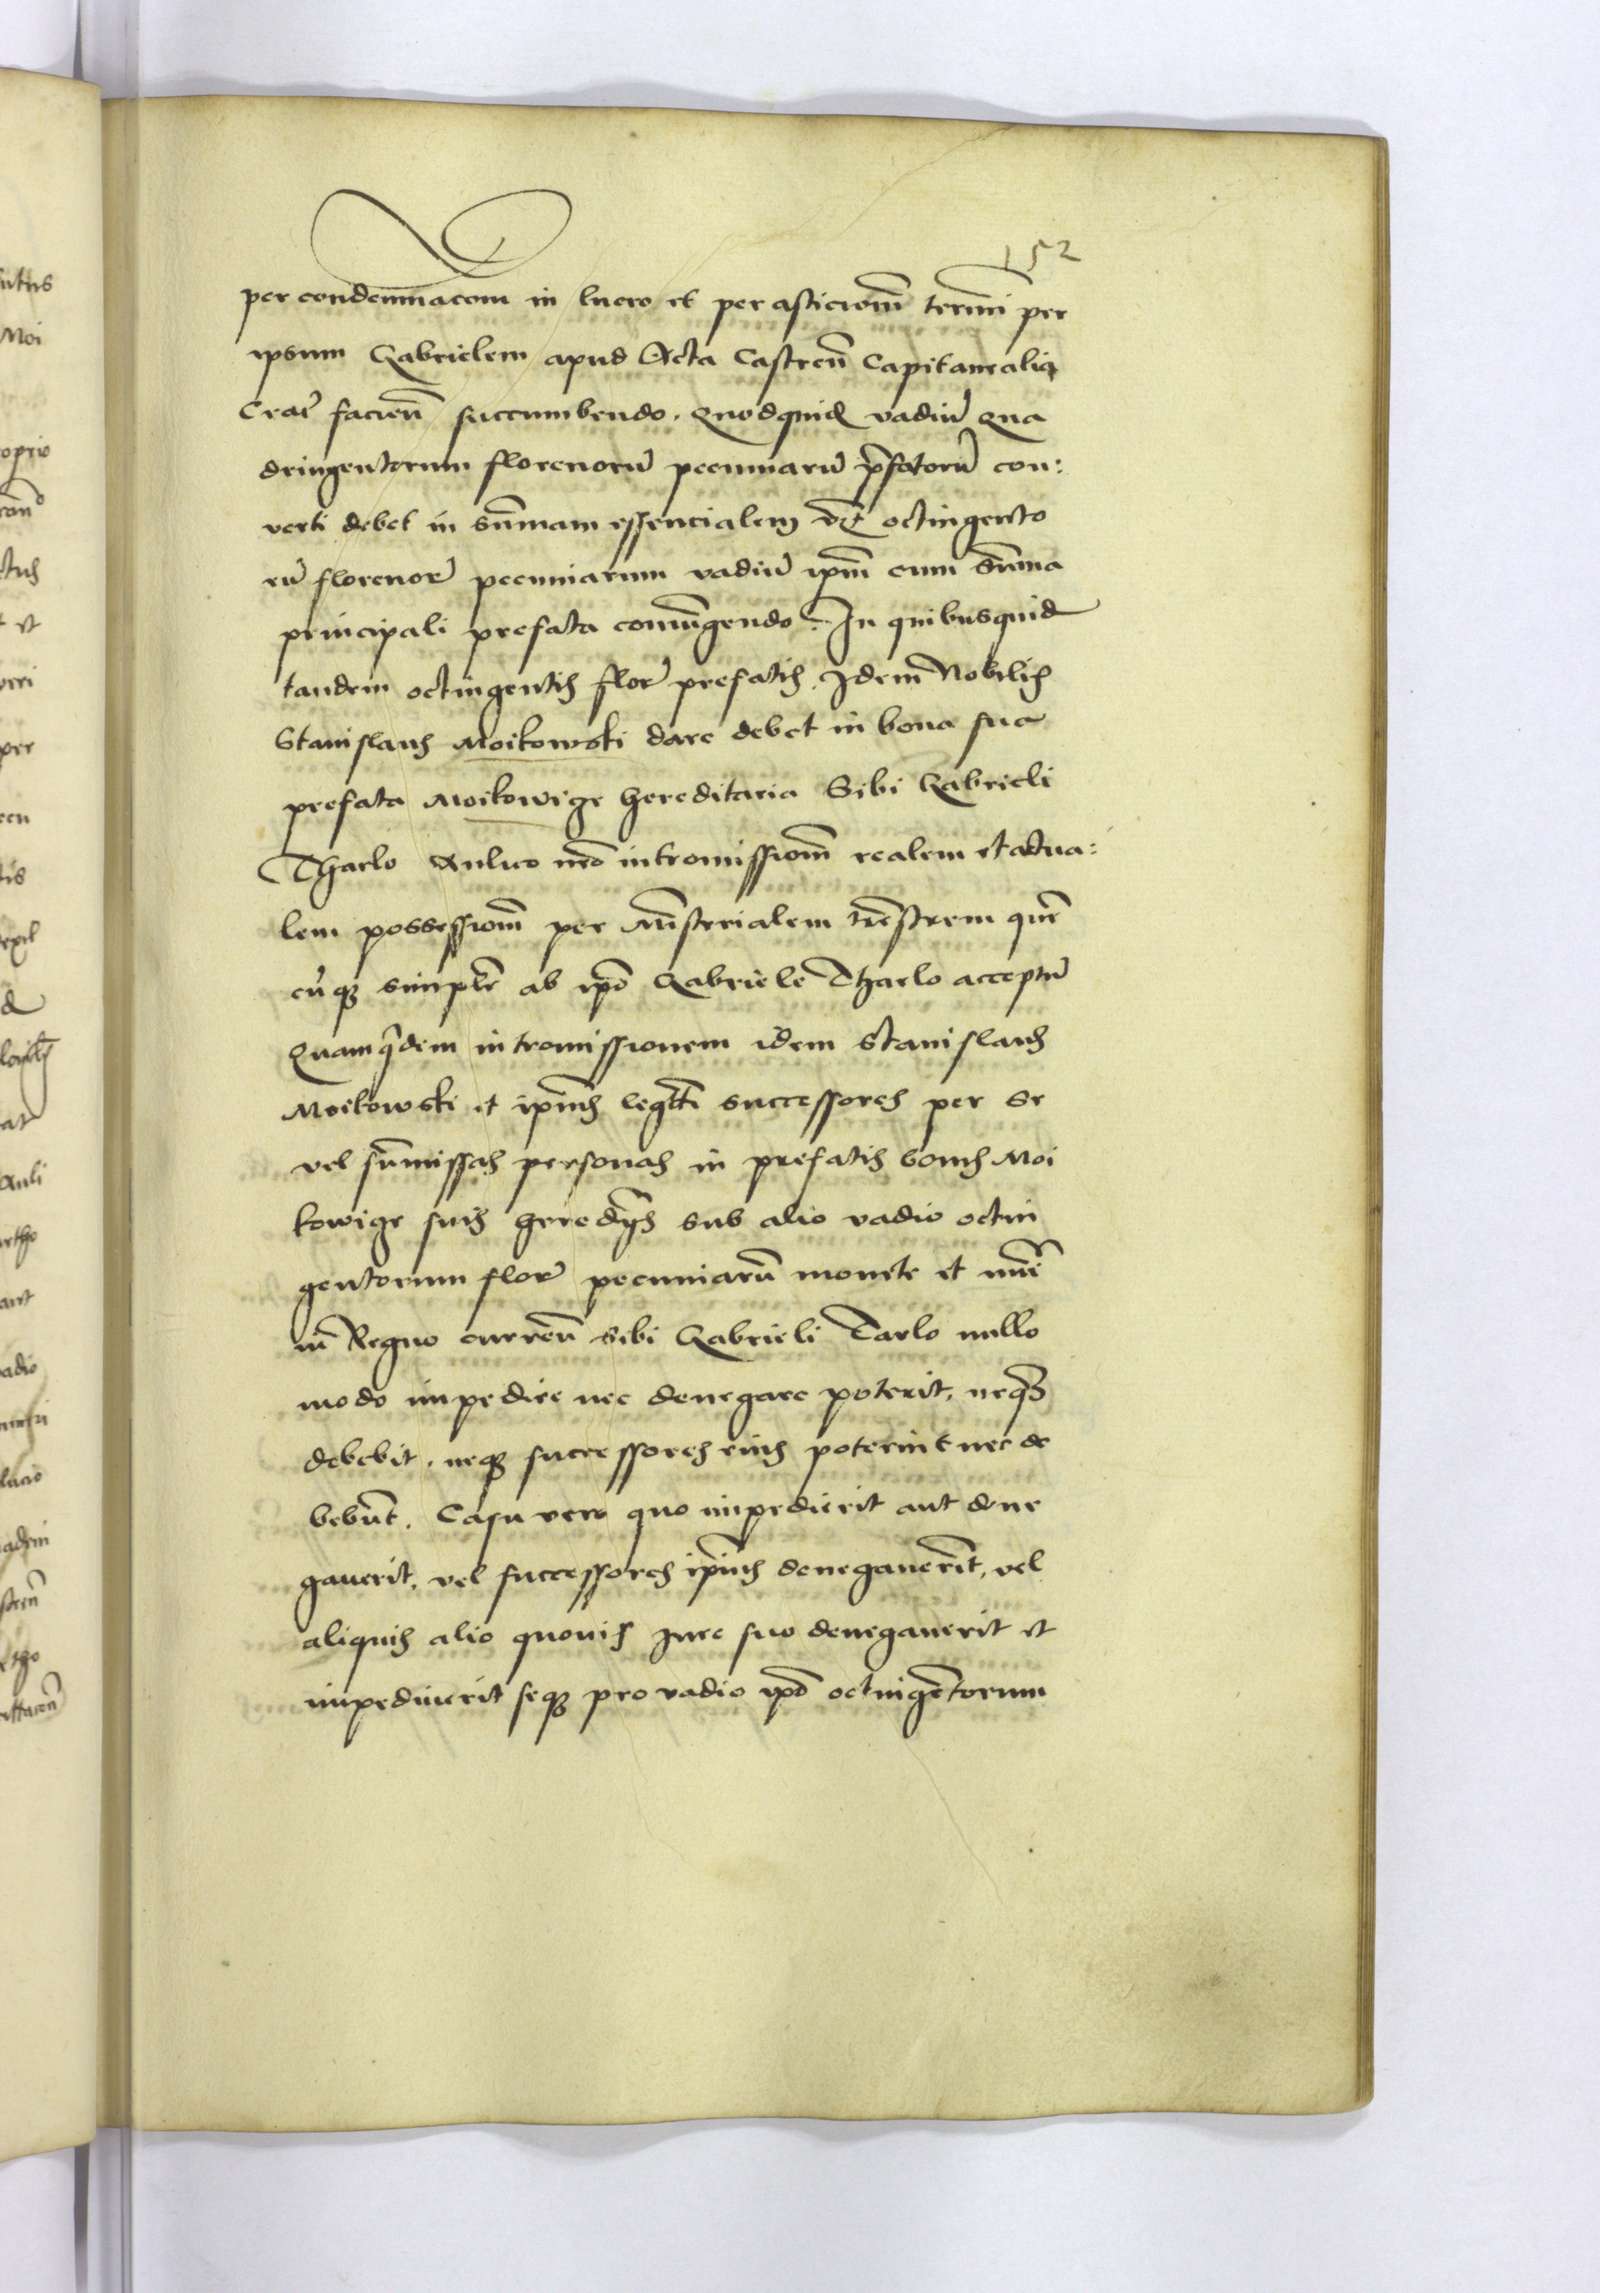 152
per condemnacom in lucro et per asticiom̄ termi͞ per
ipsum Gabrielem apud Acta Castren̄ Capitanealia
Crac̄ facien̄ succumbendo. Quodquid vadiu͞ qua
dringentorum florenoru͞ pecuniaru͞ p͞fatoru͞ con:
verti debet in su͞mam essencialem v͞z octingento
ru͞ florenor͞ pecuniarum vadiu͞ ip͞m cum su͞ma
principali prefata coniu͞gendo. In quibusquid
tandem octingentis flor͞ prefatis. Idem Nobilis
Stanislaus Moikowski dare debet in bona sua
prefata Moikowicze hereditaria Sibi Gabrieli
Tharlo Aulico n͞ro intromissiom̄ realem et actua:
lem possessiom̄ per Mi͞sterialem t͞restrem que͞
cu͞q simpl͞r ab ip͞o Gabriele Tharlo acceptu͞
Quam q͞dem intromissionem idem Stanislaus
Moikowski et ip͞ius leg͞tti successores per se
vel su͞missas personas in prefatis bonis Moi
kowicze suis heredijs sub alio vadio octin
gentorum flor͞ pecuniaru͞ monete et nu͞i
in Regno curren̄ sibi Gabrieli Tarlo nullo
modo impedire nec denegare poterit, neq͞
debebit, neq successores eius poterint nec de
bebu͞t. Casu vero quo impedierit aut dene
gauerit, vel successores ip͞ius denegaueri͞t, vel
aliquis alio quouis Jure suo denegauerit et
impediuerit seq pro vadio ip͞o octinge͞torum